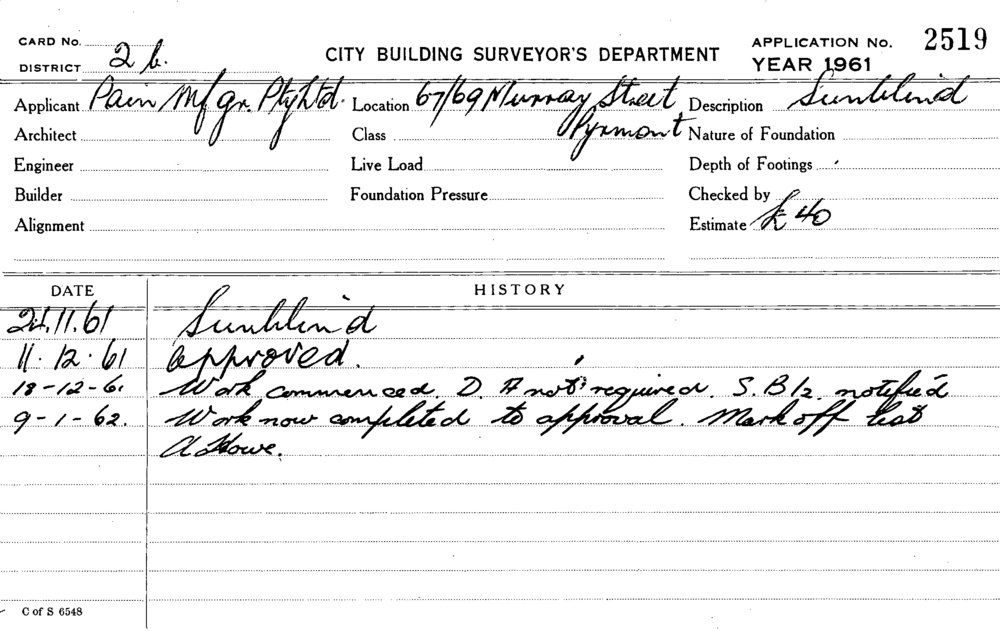 CARD No.
DISTRICT 2 b.
CITY BUILDING SURVEYOR'S DEPARTMENT
APPLICATION No. 2519
YEAR 1961
Applicant Pain Mfgr. Pty Ltd. Location 67/69 Murray Street Description Sunblind
Architect Class Pyrmont Nature of Foundation
Engineer Live Load Depth of Footings
Builder Foundation Pressure Checked by
Alignment Estimate £ 40
DATE HISTORY
24.11.61 Sunblind
11.12.61 approved.
18-12-61 Work commenced. D. not required. S. B/2. notified
9-1-62. Work now completed to approval. Mark off list
A Howe.
C of S 6548